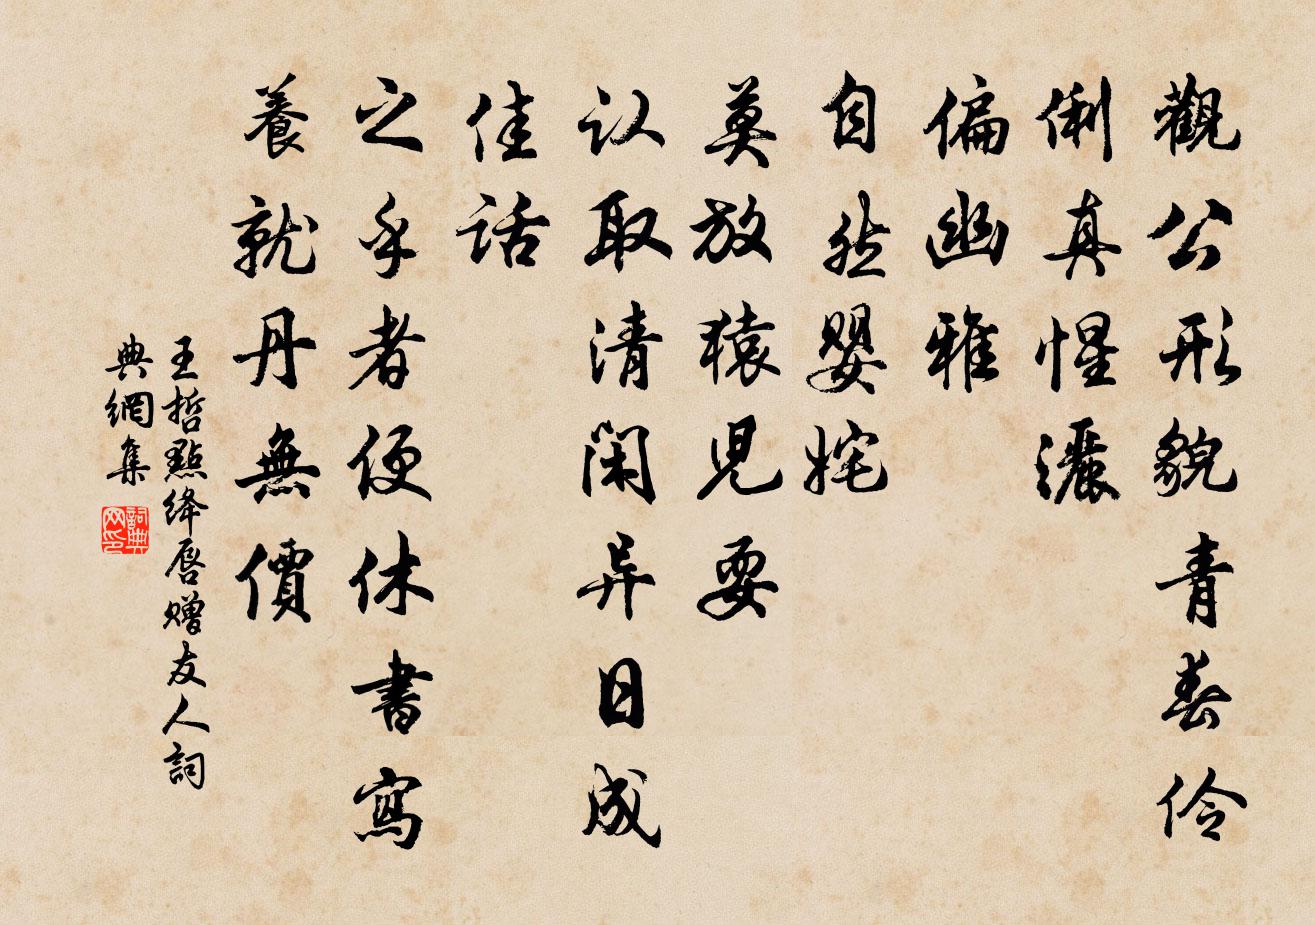 觀公形貌青春伶
俐真惺灑
偏幽雅
自然嬰姹
莫放猿児耍
认取清閑异日成
佳話
之乎者便休書寫
養就丹無價
王哲點绛唇赠友人詞
典網集
詞典网印